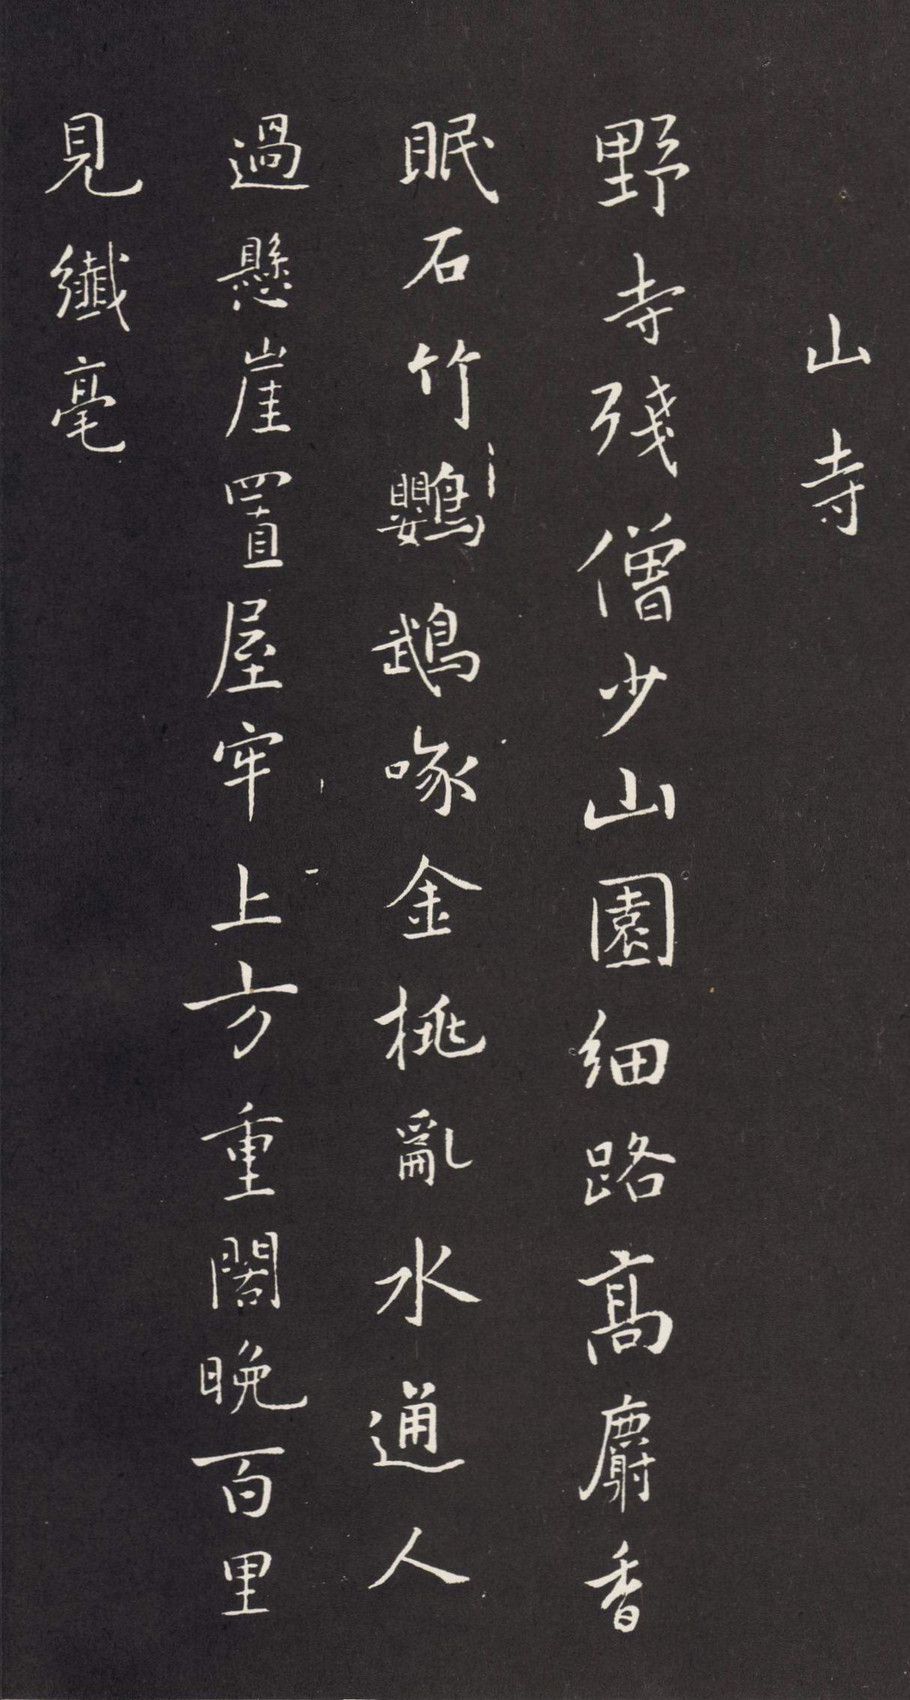 山寺
野寺殘僧少山園細路高麝香
眠石竹鸚鵡啄金桃亂水通人
過懸崖置屋牢上方重閣晚百里
見纖毫